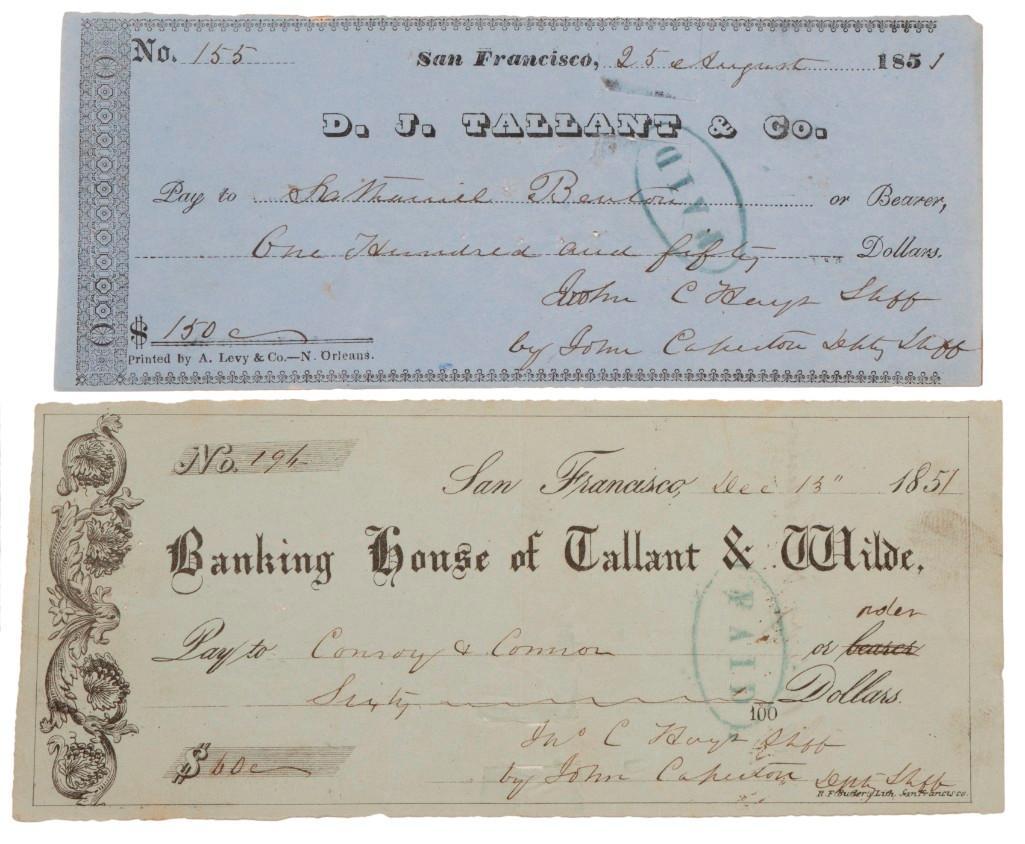 No. 155 San Francisco, 25 August 1851
D. J. TALLANT & Co.
PAID
Pay to Nathaniel Benton or Bearer,
One Hundred and fifty Dollars.
John C Hays Shff
$ 150
by John Caperton Dpty Shff
Printed by A. Levy & Co.—N. Orleans.
No. 194
San Francisco, Dec 13" 1851
Banking House of Tallant & Wilde.
PAID
order
Pay to Conroy & Connor or bearer
Sixty 100 Dollars.
Jno C Hays Shff
$ 60
by John Caperton Dpty Shff
B. F. Butler, Lith. San Francisco.